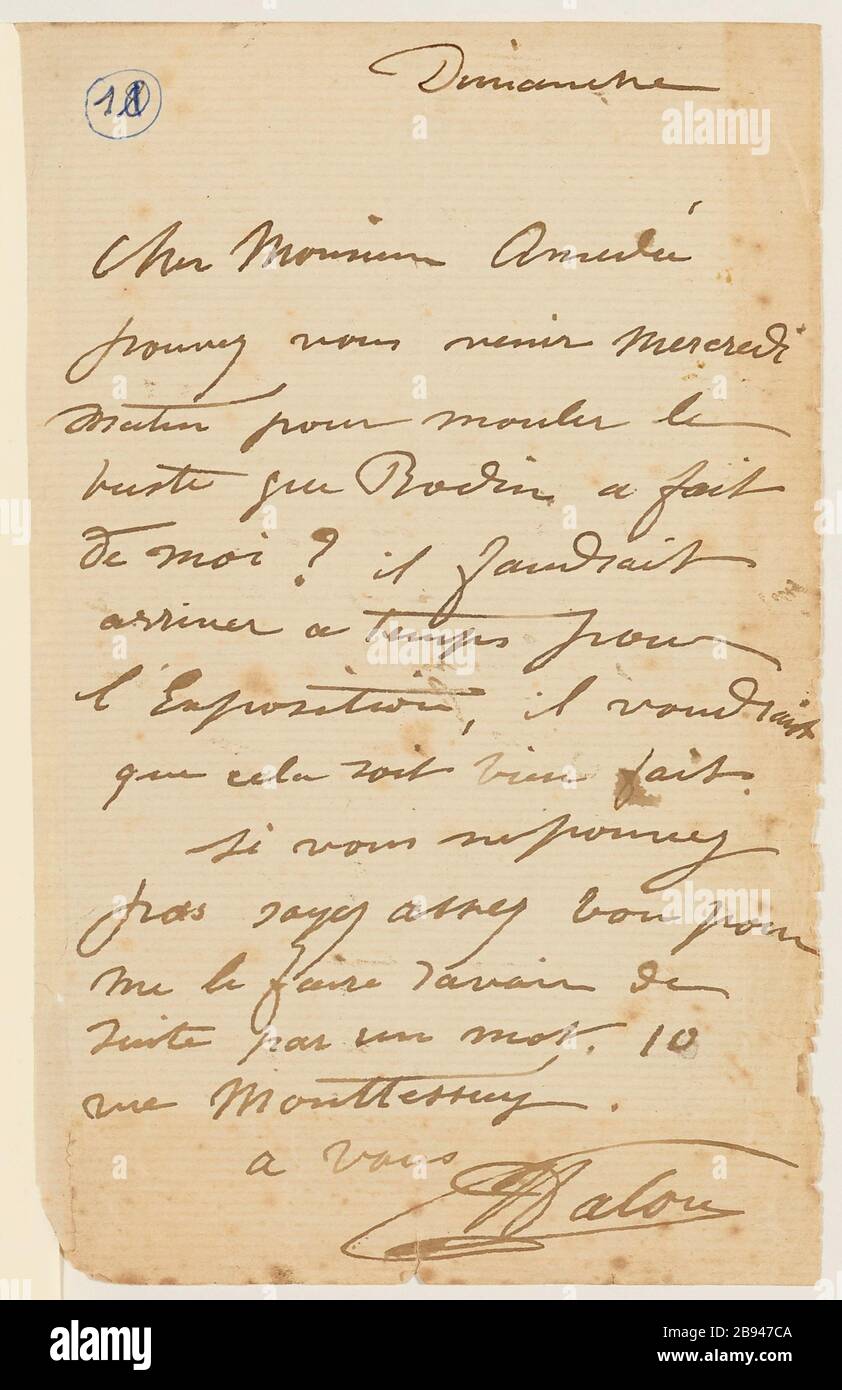 Dimanche
11
Cher Monsieur Amedée
pouvez vous venir Mercredi
matin pour mouler le
buste que Rodin a fait
de moi ? il faudrait
arriver a temps pour
l'Exposition, il voudrait
que cela soit bien fait.
si vous ne pouvez
pas soyez assez bon pour
me le faire savoir de
suite par un mot. 10
rue Monttessuy.
a vous
Dalou
alamy
Image ID: 2B947CA
www.alamy.com